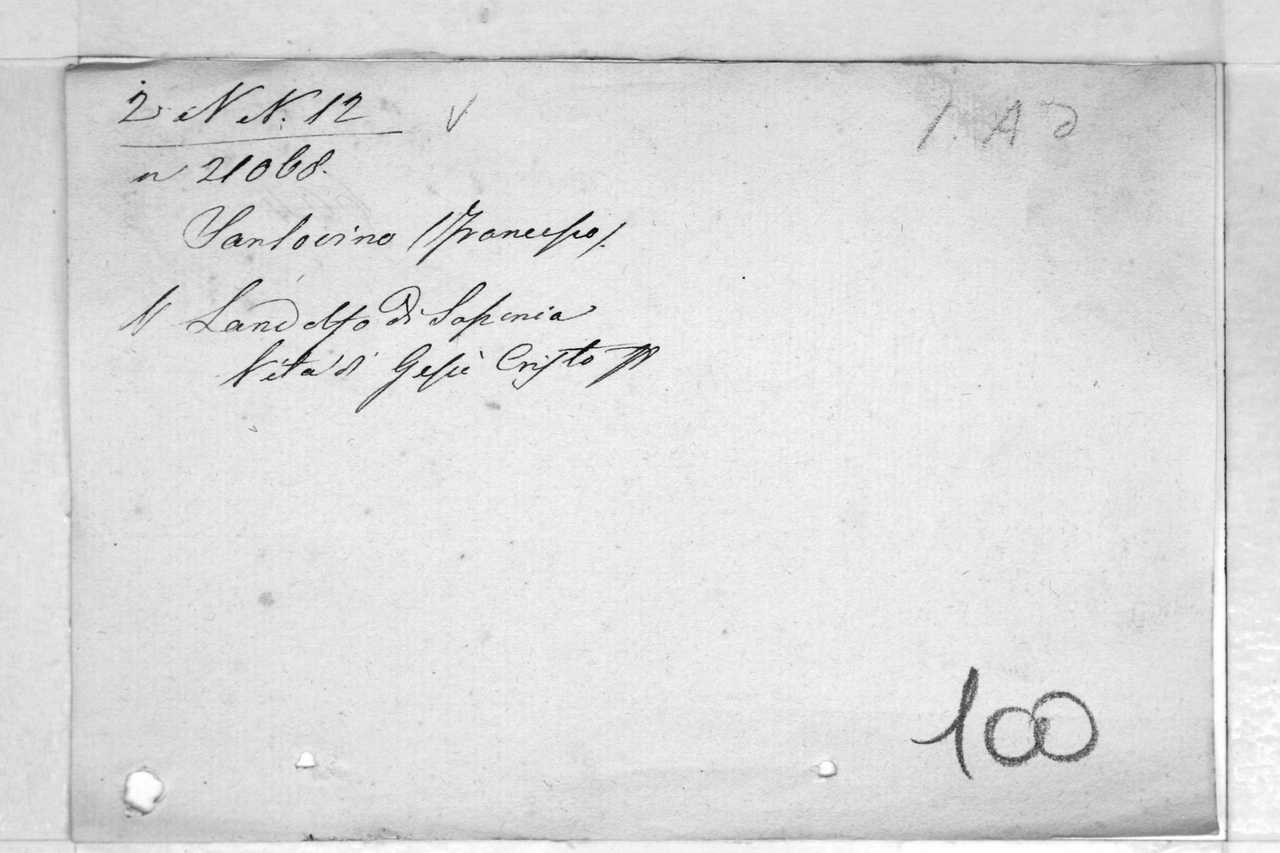 2 N N. 12
n 21068.
Sansovino (Francesco).
V Landolfo di Sassonia
Vita di Gesù Cristo
100